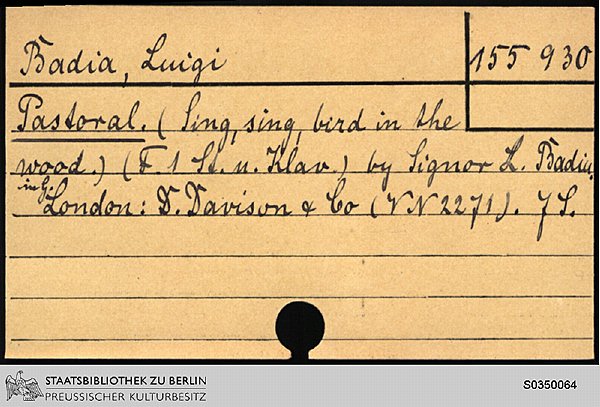 Badia, Luigi
155 930
Pastoral. (Sing, sing, bird in the
wood.) (F. 1 St. u. Klav.) by Signor L. Badia.
in G.
London: D. Davison & Co (VN 2271). 7 S.
STAATSBIBLIOTHEK ZU BERLIN
PREUSSISCHER KULTURBESITZ
S0350064